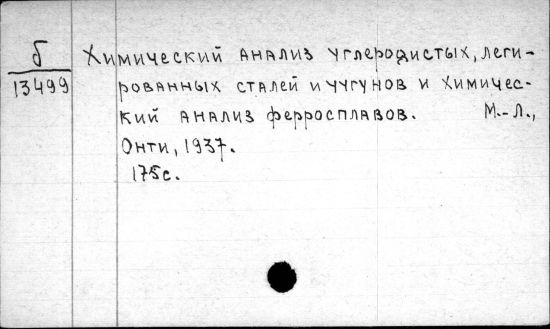 Б
13499
Химический анализ углеродистых, леги-
рованных сталей и чугунов и химичес-
кий анализ ферросплавов. М.-Л.,
Онти, 1937.
175с.